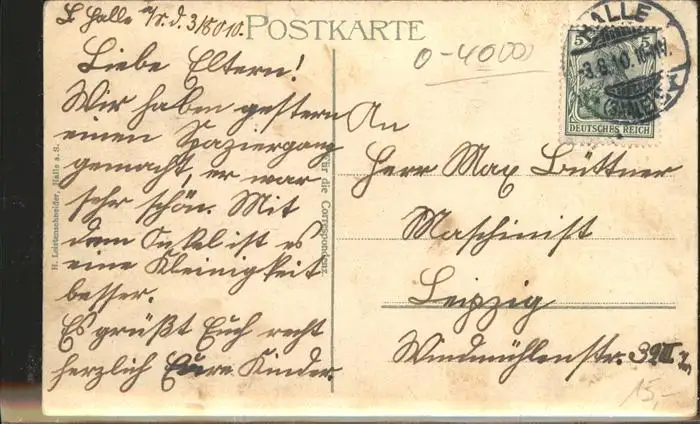 Halle a/S. d. 3/8 010.
POSTKARTE
0-4000
Liebe Eltern!
Wir haben gestern
einen Spaziergang
gemacht, er war
sehr schön. Mit
dem Onkel ist es
eine Kleinigkeit
besser.
Es grüßt Euch recht
herzlich Eure Kinder.
H. Leistenschneider, Halle a. S.
Für die Correspondenz.
HALLE
-3.8.10.
(SAALE)
5 5
DEUTSCHES REICH
An
Herr Max Büttner
Maschinist
Leipzig
Windmühlenstr. 39III
15,-